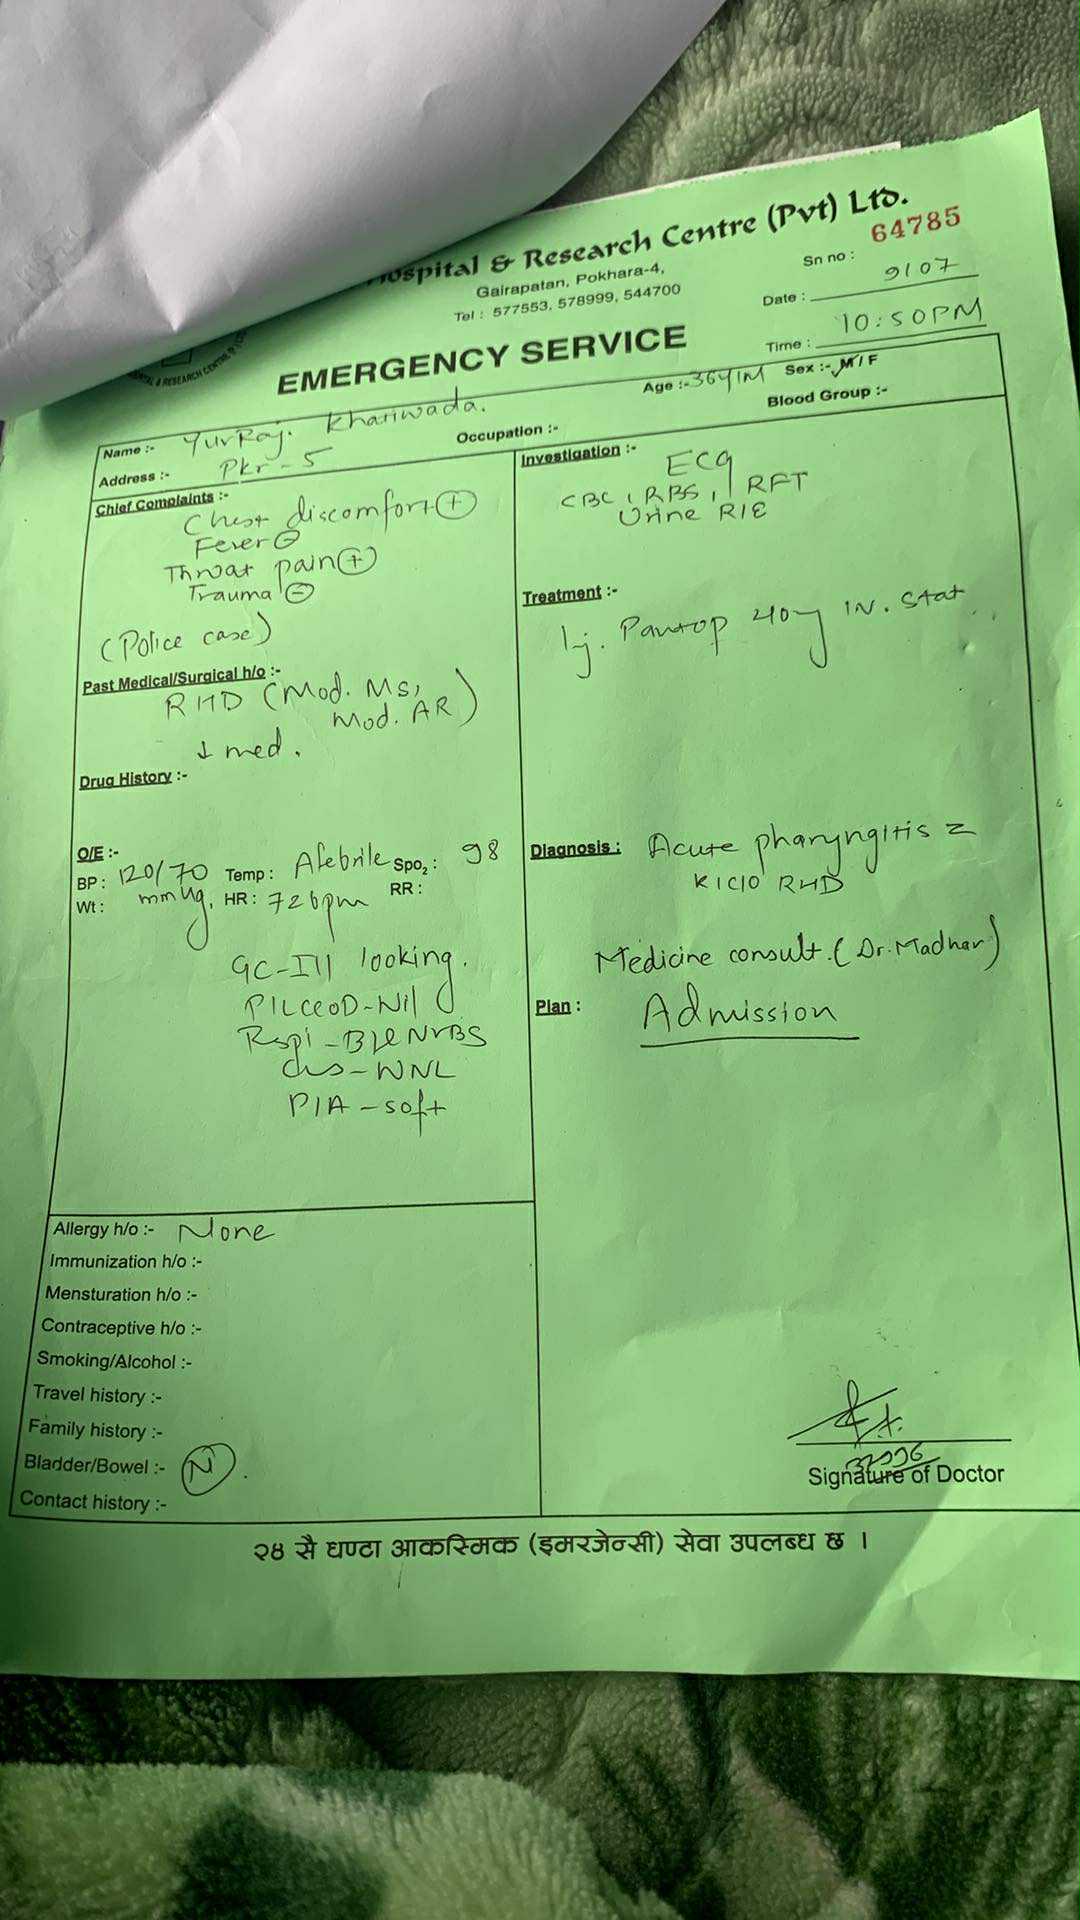 Hospital & Research Centre (Pvt) Ltd.
Gairapatan, Pokhara-4,
Tel : 577553, 578999, 544700
Sn no : 64785
Date : 9/07
Time : 10:50PM
EMERGENCY SERVICE
Name :- YuvRaj. Khariwada.
Age :- 36Y/M Sex :- M/F
Address :- Pkr-5
Occupation :-
Blood Group :-
Chief Complaints :-
Chest discomfort (+)
Fever (-)
Throat pain (+)
Trauma (-)
(Police case)
Past Medical/Surgical h/o :-
RHD (Mod. MS,
Mod. AR)
↓ med.
Drug History :-
O/E :-
BP : 120/70 Temp : Afebrile Spo2 : 98
Wt : mmHg, HR : 72bpm RR :
GC-Ill looking.
PILCCOD-Nil
Rspi-B/L NVBS
CVS-WNL
P/A-soft
Allergy h/o :- None
Immunization h/o :-
Mensturation h/o :-
Contraceptive h/o :-
Smoking/Alcohol :-
Travel history :-
Family history :-
Bladder/Bowel :- (N).
Contact history :-
Investigation :-
ECG
CBC, RBS, RFT
Urine R/E
Treatment :-
Inj. Pantop 40mg IV. stat
Diagnosis : Acute pharyngitis
K/C/O RHD
Medicine consult. (Dr. Madhav)
Plan : Admission
Signature of Doctor
२४ सै घण्टा आकस्मिक (इमरजेन्सी) सेवा उपलब्ध छ ।